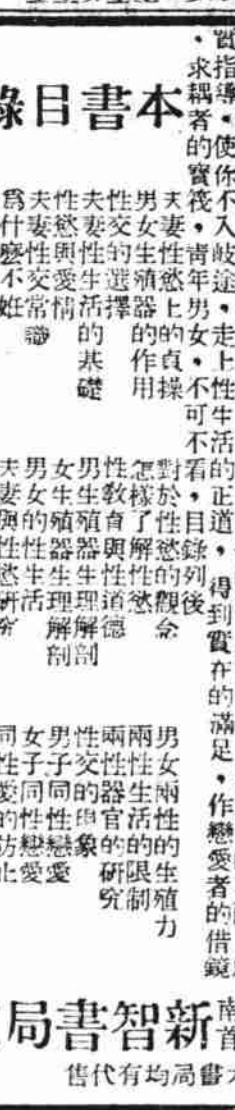 實指導，使你不入歧途，走上性生活的正道，得到實在的滿足，作戀愛者的借鏡
，求耦者的寶筏，靑年男女，不可不看，目錄列後
本書目錄
夫妻性慾上的貞操
男女生殖器的作用
性交的選擇
夫妻性生活的基礎
性慾與愛情
夫妻性交常識
爲什麼不妊
對於性慾的觀念
怎樣了解性慾
性敎育與性道德
男生殖器生理解剖
女生殖器生理解剖
男女的性生活
夫妻與性慾研究
男女兩性的生殖力
兩性生活的限制
兩性器官的研究
性交的現象
男子同性戀愛
女子同性戀愛
同性愛的防止
南首
新智書局
大書局均有代售